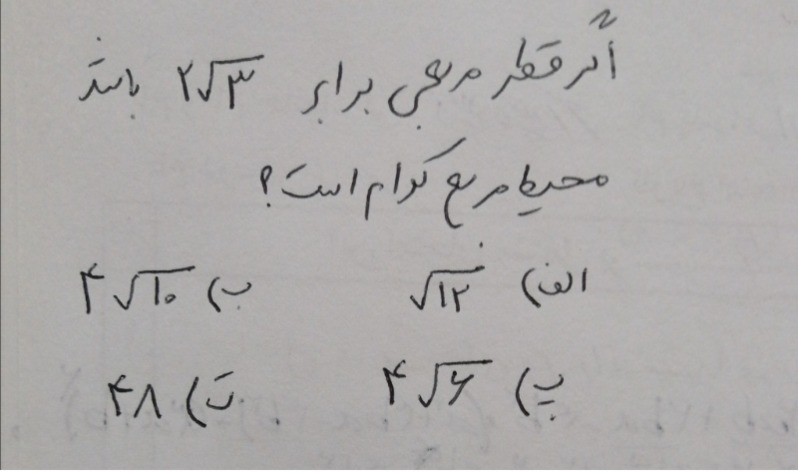 اگر قطر مربعی برابر ۲√۳ باشد
محیط مربع کدام است؟
الف) √۱۲ ب) ۴√۱۰
پ) ۴√۶ ت) ۴۸